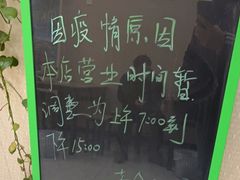 因疫情原因
本店营业时间暂
调整为上午7:00到
下午15:00